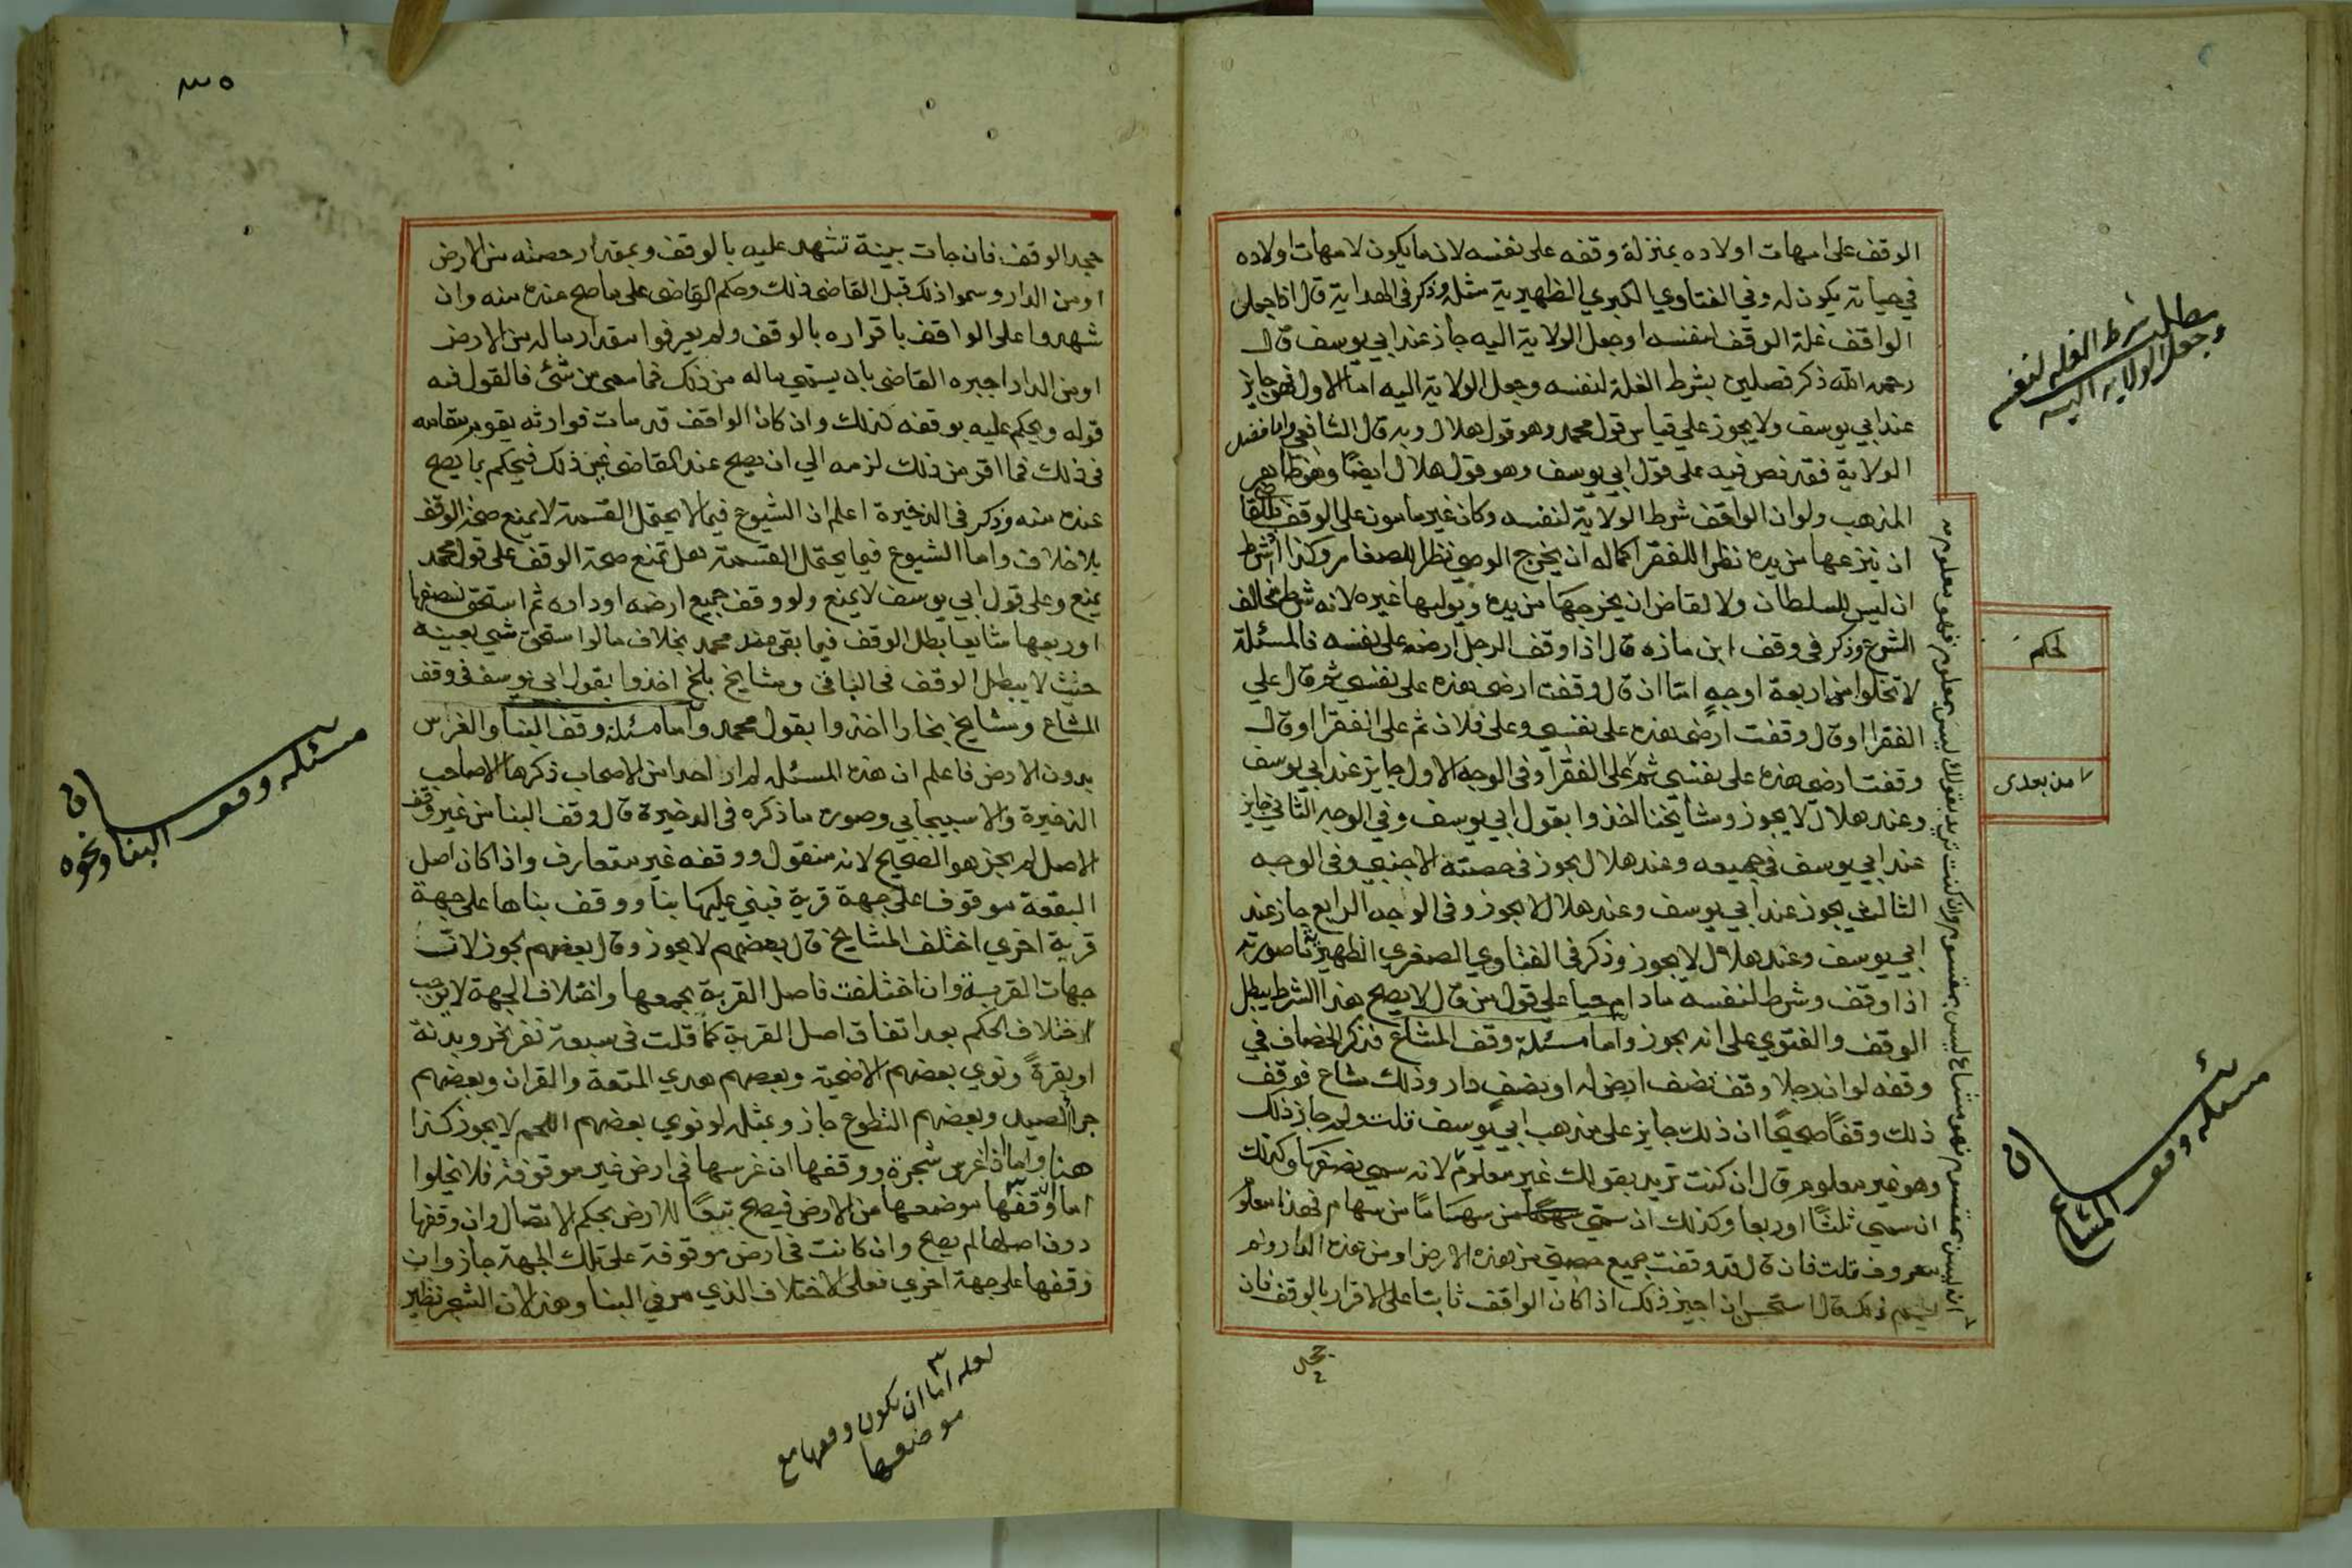 الوقف على امهات اولاده بمنزلة وقفه على نفسه لان ما يكون لامهات اولاده
في حياته يكون له وفي الفتاوي الكبري الظهيرية مثله وذكر في الهداية قال اذا جعل
الواقف غلة الوقف لنفسه او جعل الولاية اليه جاز عند ابي يوسف قال
رحمه الله ذكر فصلين بشرط الغلة لنفسه وجعل الولاية اليه اما الاول فهو جايز
عند ابي يوسف ولا يجوز علي قياس قول محمد وهو قول هلال وبه قال الشافعي واما فصل
الولاية فقد نص فيه على قول ابي يوسف وهو قول هلال ايضا وهو ظاهر
المذهب ولو ان الواقف شرط الولاية لنفسه وكان غير مامون علي الوقف فللقاضي
ان ينزعها من يده نظرا للفقرا كما له ان يخرج الوصي نظرا للصغار وكذا اذا شرط
ان ليس للسلطان ولا لقاض ان يخرجها من يده ويوليها غيره لانه شرط مخالف
الشرع وذكر في وقف ابن مازه قال اذا وقف الرجل ارضه على نفسه فالمسئلة
لا تخلوا من اربعة اوجه اما ان قال وقفت ارضي هذه على نفسي ثم قال علي
الفقرا او قال وقفت ارضي هذه على نفسي وعلى فلان ثم على الفقرا او قال
وقفت ارضي هذه على نفسي ثم على الفقرا وفي الوجه الاول جايز عند ابي يوسف
وعند هلال لا يجوز ومشايخنا اخذوا بقول ابي يوسف وفي الوجه الثاني جايز
عند ابي يوسف في جميعه وعند هلال يجوز في حصته الاجنبي وفي الوجه
الثالث يجوز عند ابي يوسف وعند هلال لا يجوز وفي الوجه الرابع جاز عند
ابي يوسف وعند هلال لا يجوز وذكر في الفتاوي الصغري الظهيرية ما صورته
اذا وقف وشرط لنفسه ما دام حيا علي قول من قال لا يصح هذا الشرط يبطل
الوقف والفتوي على انه يجوز واما مسئلة وقف المشاع فذكر الخصاف في
وقفه لو ان رجلا وقف نصف ارض له او نصف دار وذلك مشاع فوقف
ذلك وقفا صحيحا ان ذلك جايز على مذهب ابي يوسف قلت ولم جاز ذلك
وهو غير معلوم قال ان كنت تريد بقولك غير معلوم لانه سمي نصفها وكذلك
ان سمي ثلثا او ربعا وكذلك ان سمي سهاما من سهام فهذا معلوم
معروف قلت فان قال قد وقفت جميع حصتي من هذه الارض او من هذه الدار ولم
يسم ذلك قال استحسن ان اجيز ذلك اذا كان الواقف ثابتا على الاقرار بالوقف فان
جحد
ان ليس بمقسوم فهو مشاع ليس بمقسوم وان كنت تريد بقولك ليس بمعلوم فهو معلوم
مطلب شرط الغله لنفسه
وجعل الولاية اليه
الحكم
من بعدي
مسئلة وقف
المشاع
٣٥
جحد الوقف فان جات بينة تشهد عليه بالوقف وبمقدار حصته من الارض
او من الدار وسموا ذلك قبل القاضي ذلك وحكم القاضي على ما صح عنده منه وان
شهدوا على الواقف باقراره بالوقف ولم يعرفوا مقدار ماله من الارض
او من الدار اجبره القاضي بان يسمي ماله من ذلك فما سمى من شئ فالقول فيه
قوله ويحكم عليه بوقفه كذلك وان كان الواقف قد مات فوارثه يقوم مقامه
في ذلك فما اقر من ذلك لزمه الي ان يصح عند القاضي غير ذلك فيحكم بما يصح
عنده منه وذكر في الذخيرة اعلم ان الشيوع فيما لا يحتمل القسمة لا يمنع صحة الوقف
بلا خلاف واما الشيوع فيما يحتمل القسمة هل تمنع صحة الوقف على قول محمد
يمنع وعلى قول ابي يوسف لا يمنع ولو وقف جميع ارضه او داره ثم استحق نصفها
او ربعها مشايعا بطل الوقف فيما بقي عند محمد بخلاف ما لو استحق شي بعينه
حيث لا يبطل الوقف في الباقي ومشايخ بلخ اخذوا بقول ابي يوسف في وقف
المشاع ومشايخ بخارا اخذوا بقول محمد واما مسئلة وقف البنا والغراس
بدون الارض فاعلم ان هذه المسئله لم ار احدا من الاصحاب ذكرها الا صاحب
الذخيرة والاسبيجابي وصورة ما ذكره في الدخيرة قال وقف البنا من غير وقف
الاصل لم يجز هو الصحيح لانه منقول ووقفه غير متعارف واذا كان اصل
البقعة موقوفا على جهة قربة فبني عليها بنا ووقف بناها على جهة
قربة اخري اختلف المشايخ قال بعضهم لا يجوز وقال بعضهم يجوز لان
جهات القربة وان اختلفت فاصل القربة يجمعها واختلاف الجهة لا يوجب
اختلاف الحكم بعد اتفاق اصل القربة كما قلت في سبعة نفر نحروا بدنة
او بقرة ونوي بعضهم الاضحية وبعضهم هدي المتعة والقران وبعضهم
جزا الصيد وبعضهم التطوع جاز وبمثله لو نوي بعضهم اللحم لا يجوز كذا
هنا واما اذا غرس شجرة ووقفها ان غرسها في ارض غير موقوفة فلا يخلوا
اما وقفها موضعها من الارض فيصح تبعا للارض بحكم الاتصال وان وقفها
دون اصلها لم يصح وان كانت في ارض موقوفة على تلك الجهة جاز وان
وقفها على جهة اخري فعلى الاختلاف الذي مر في البنا وهذا لان الشجر نظير
مسئله وقف
البنا ونحوه
لعله اما ان يكون وقفها مع
موضعها